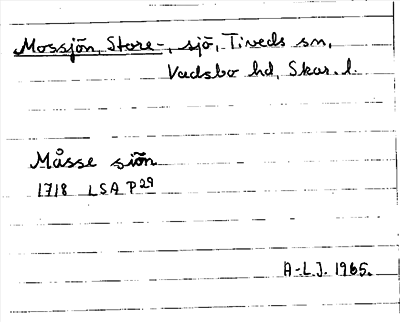 Mossjön, Store-, sjö, Tiveds sn,
Vadsbo hd, Skar. l.
Måsse siön
1718 LSA P29
A-L.J. 1965.